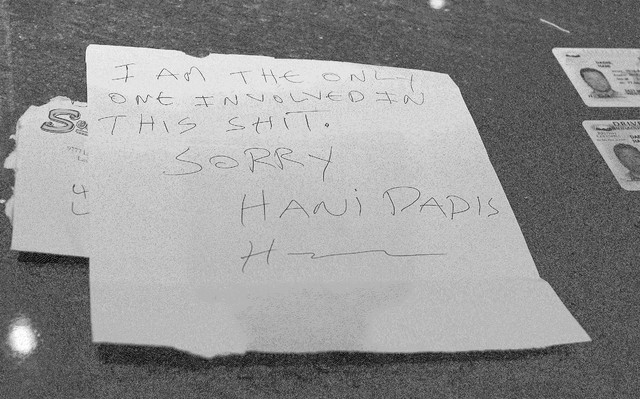 I AM THE ONLY
ONE INVOLVED IN
THIS SHIT.
SORRY
HANI DADIS
H
S
4
L
DRIVE